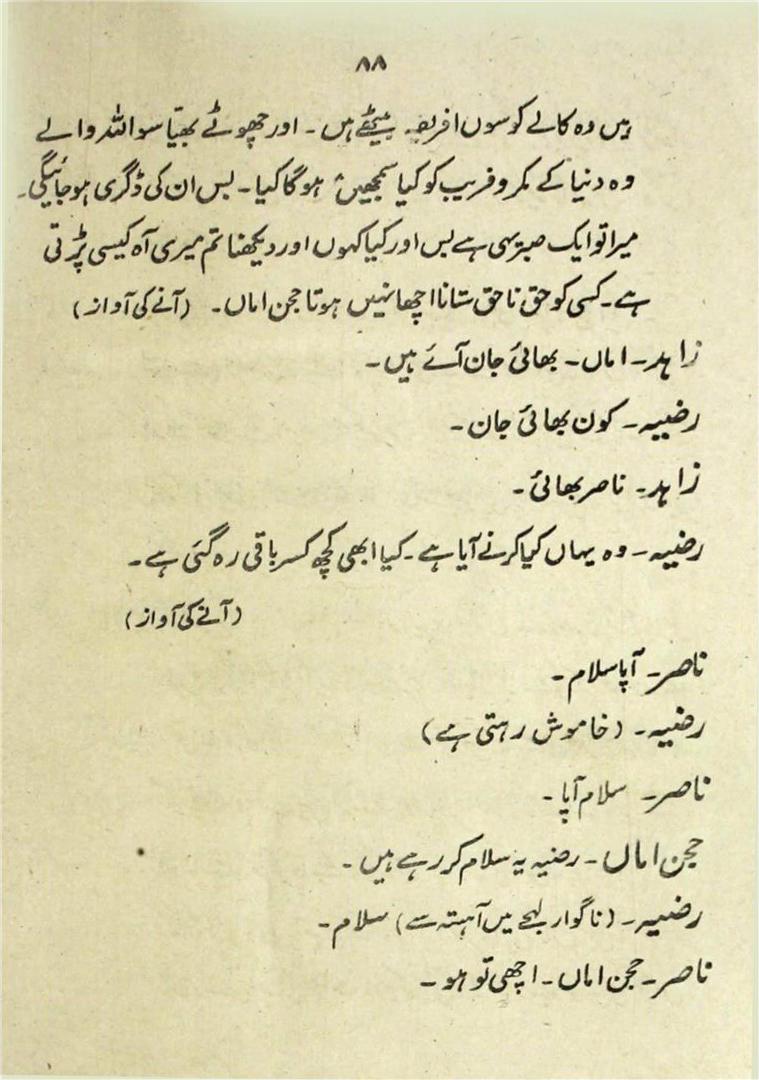 ۸۸
ہیں وہ کالے کوسوں افریقہ بیٹھے ہیں ۔ اور چھوٹے بھیّا سو اللہ والے
وہ دنیا کے مکر و فریب کو کیا سمجھیں ہوگا کیا ۔ بس ان کی ڈگری ہو جائیگی ۔
میرا تو ایک صبر ہی ہے بس اور کیا کہوں اور دیکھنا تم میری آہ کیسی پڑتی
ہے ۔ کسی کو حق ناحق ستانا اچھا نہیں ہوتا حجن اماں ۔ (آنے کی آواز)
زاہد ۔ اماں ۔ بھائی جان آئے ہیں ۔
رضیہ ۔ کون بھائی جان ۔
زاہد ۔ ناصر بھائی ۔
رضیہ ۔ وہ یہاں کیا کرنے آیا ہے ۔ کیا ابھی کچھ کسر باقی رہ گئی ہے ۔
(آنے کی آواز)
ناصر ۔ آپا سلام ۔
رضیہ ۔ (خاموش رہتی ہے)
ناصر ۔ سلام آپا ۔
حجن اماں ۔ رضیہ یہ سلام کر رہے ہیں ۔
رضیہ ۔ (ناگوار لہجے میں آہستہ سے) سلام ۔
ناصر ۔ حجن اماں ۔ اچھی تو ہو ۔